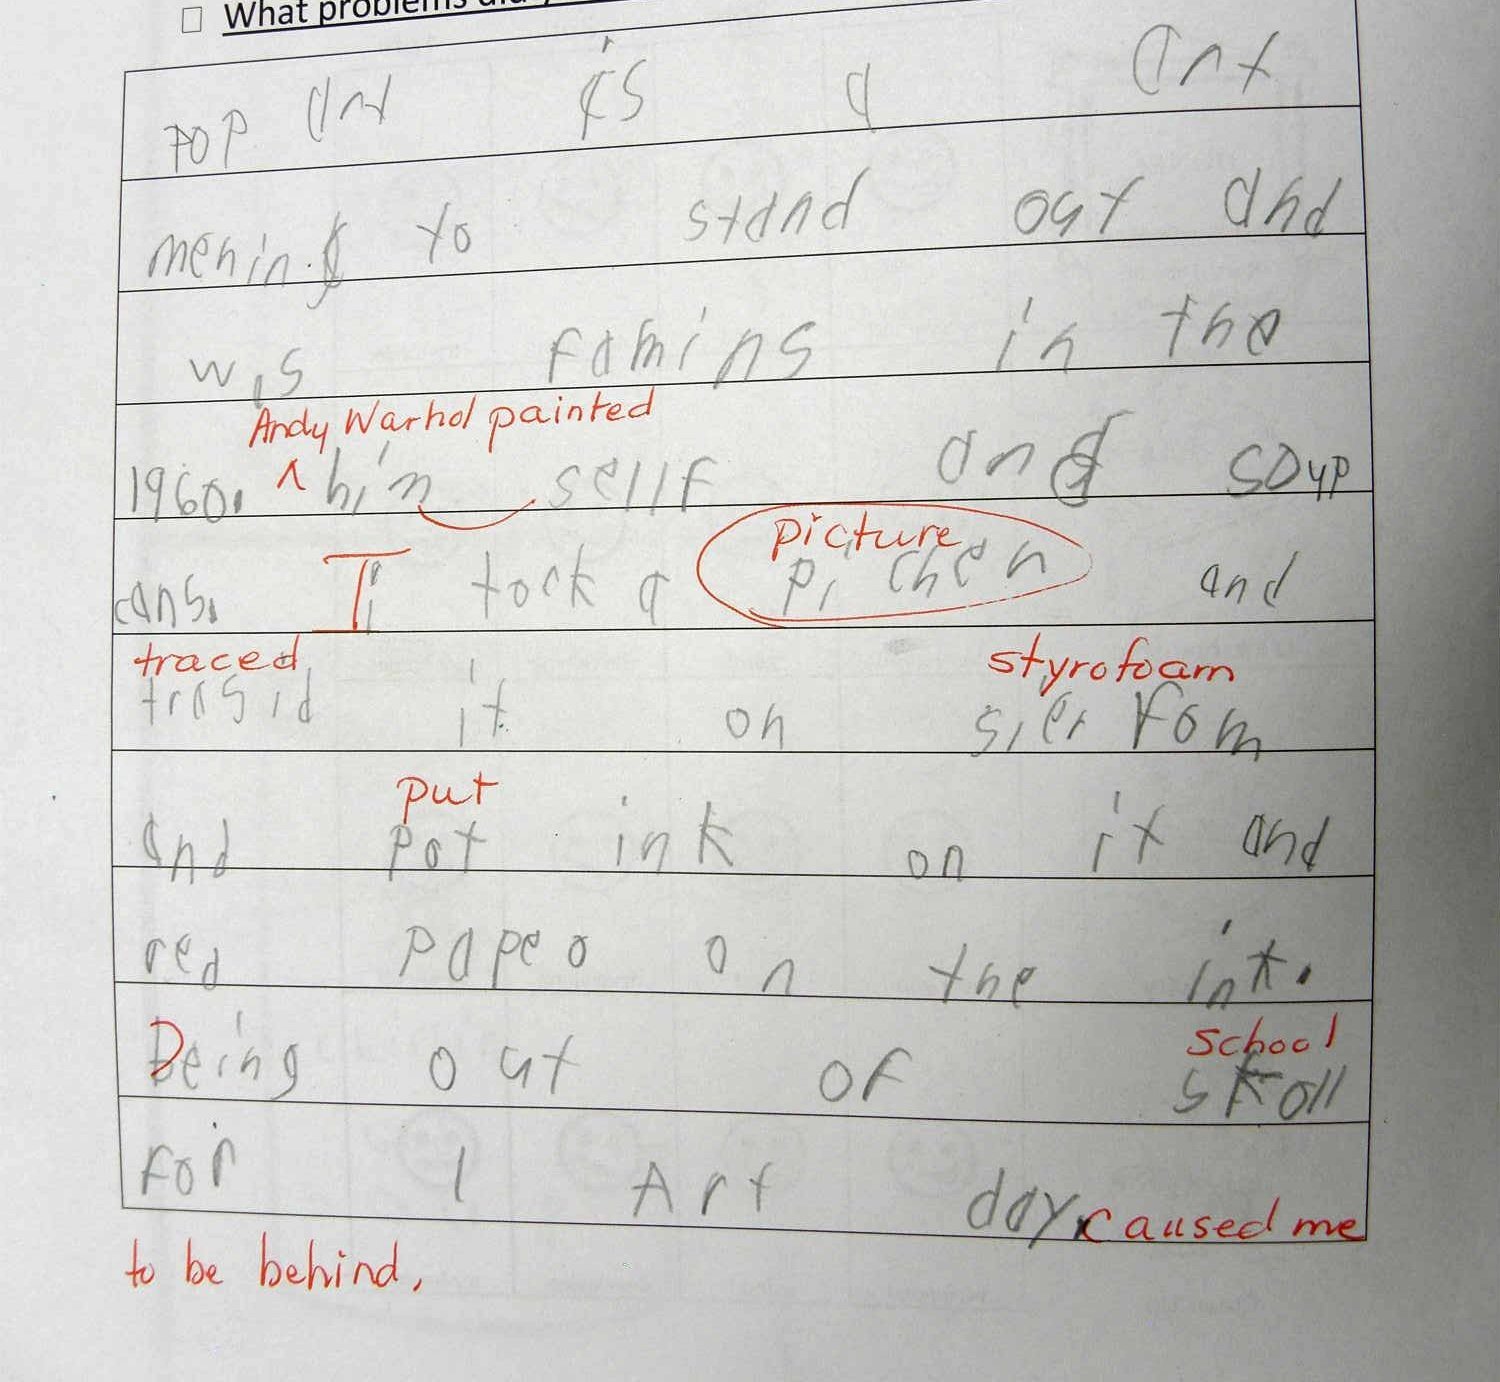 What problems did y
POP art is a art
mening to stand out and
was famins in the
Andy Warhol painted
1960. ^ him sellf and soup
picture
cans. I tock a pi chen and
traced styrofoam
trasid it on sier fom
put
and pot ink on it and
red papeo on the ink.
school
Being out of skoll
For 1 Art day, caused me
to be behind.